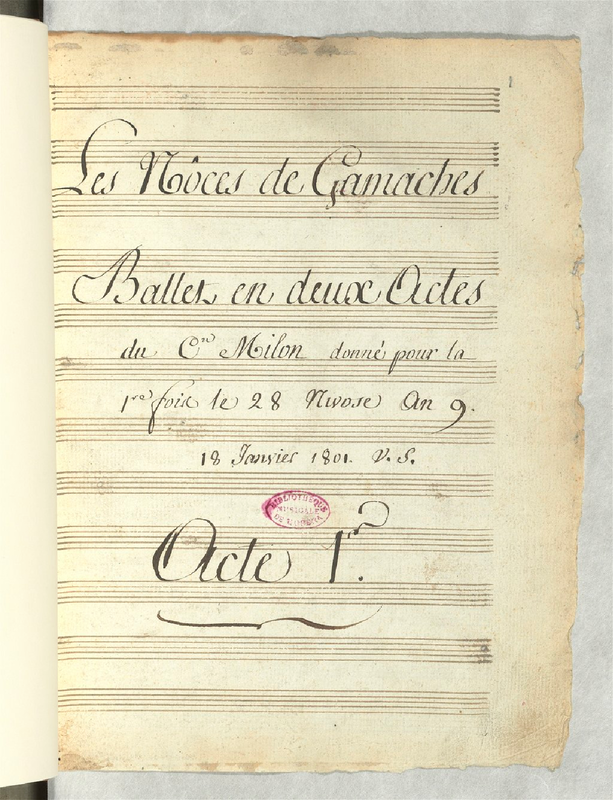 1
Les Nôces de Gamaches
Ballet en deux Actes
du C.en Milon donné pour la
1re fois le 28 Nivose An 9.
18 Janvier 1801. V. S.
BIBLIOTHÈQUE
MUSICALE
DE L'OPÉRA
Acte 1er.